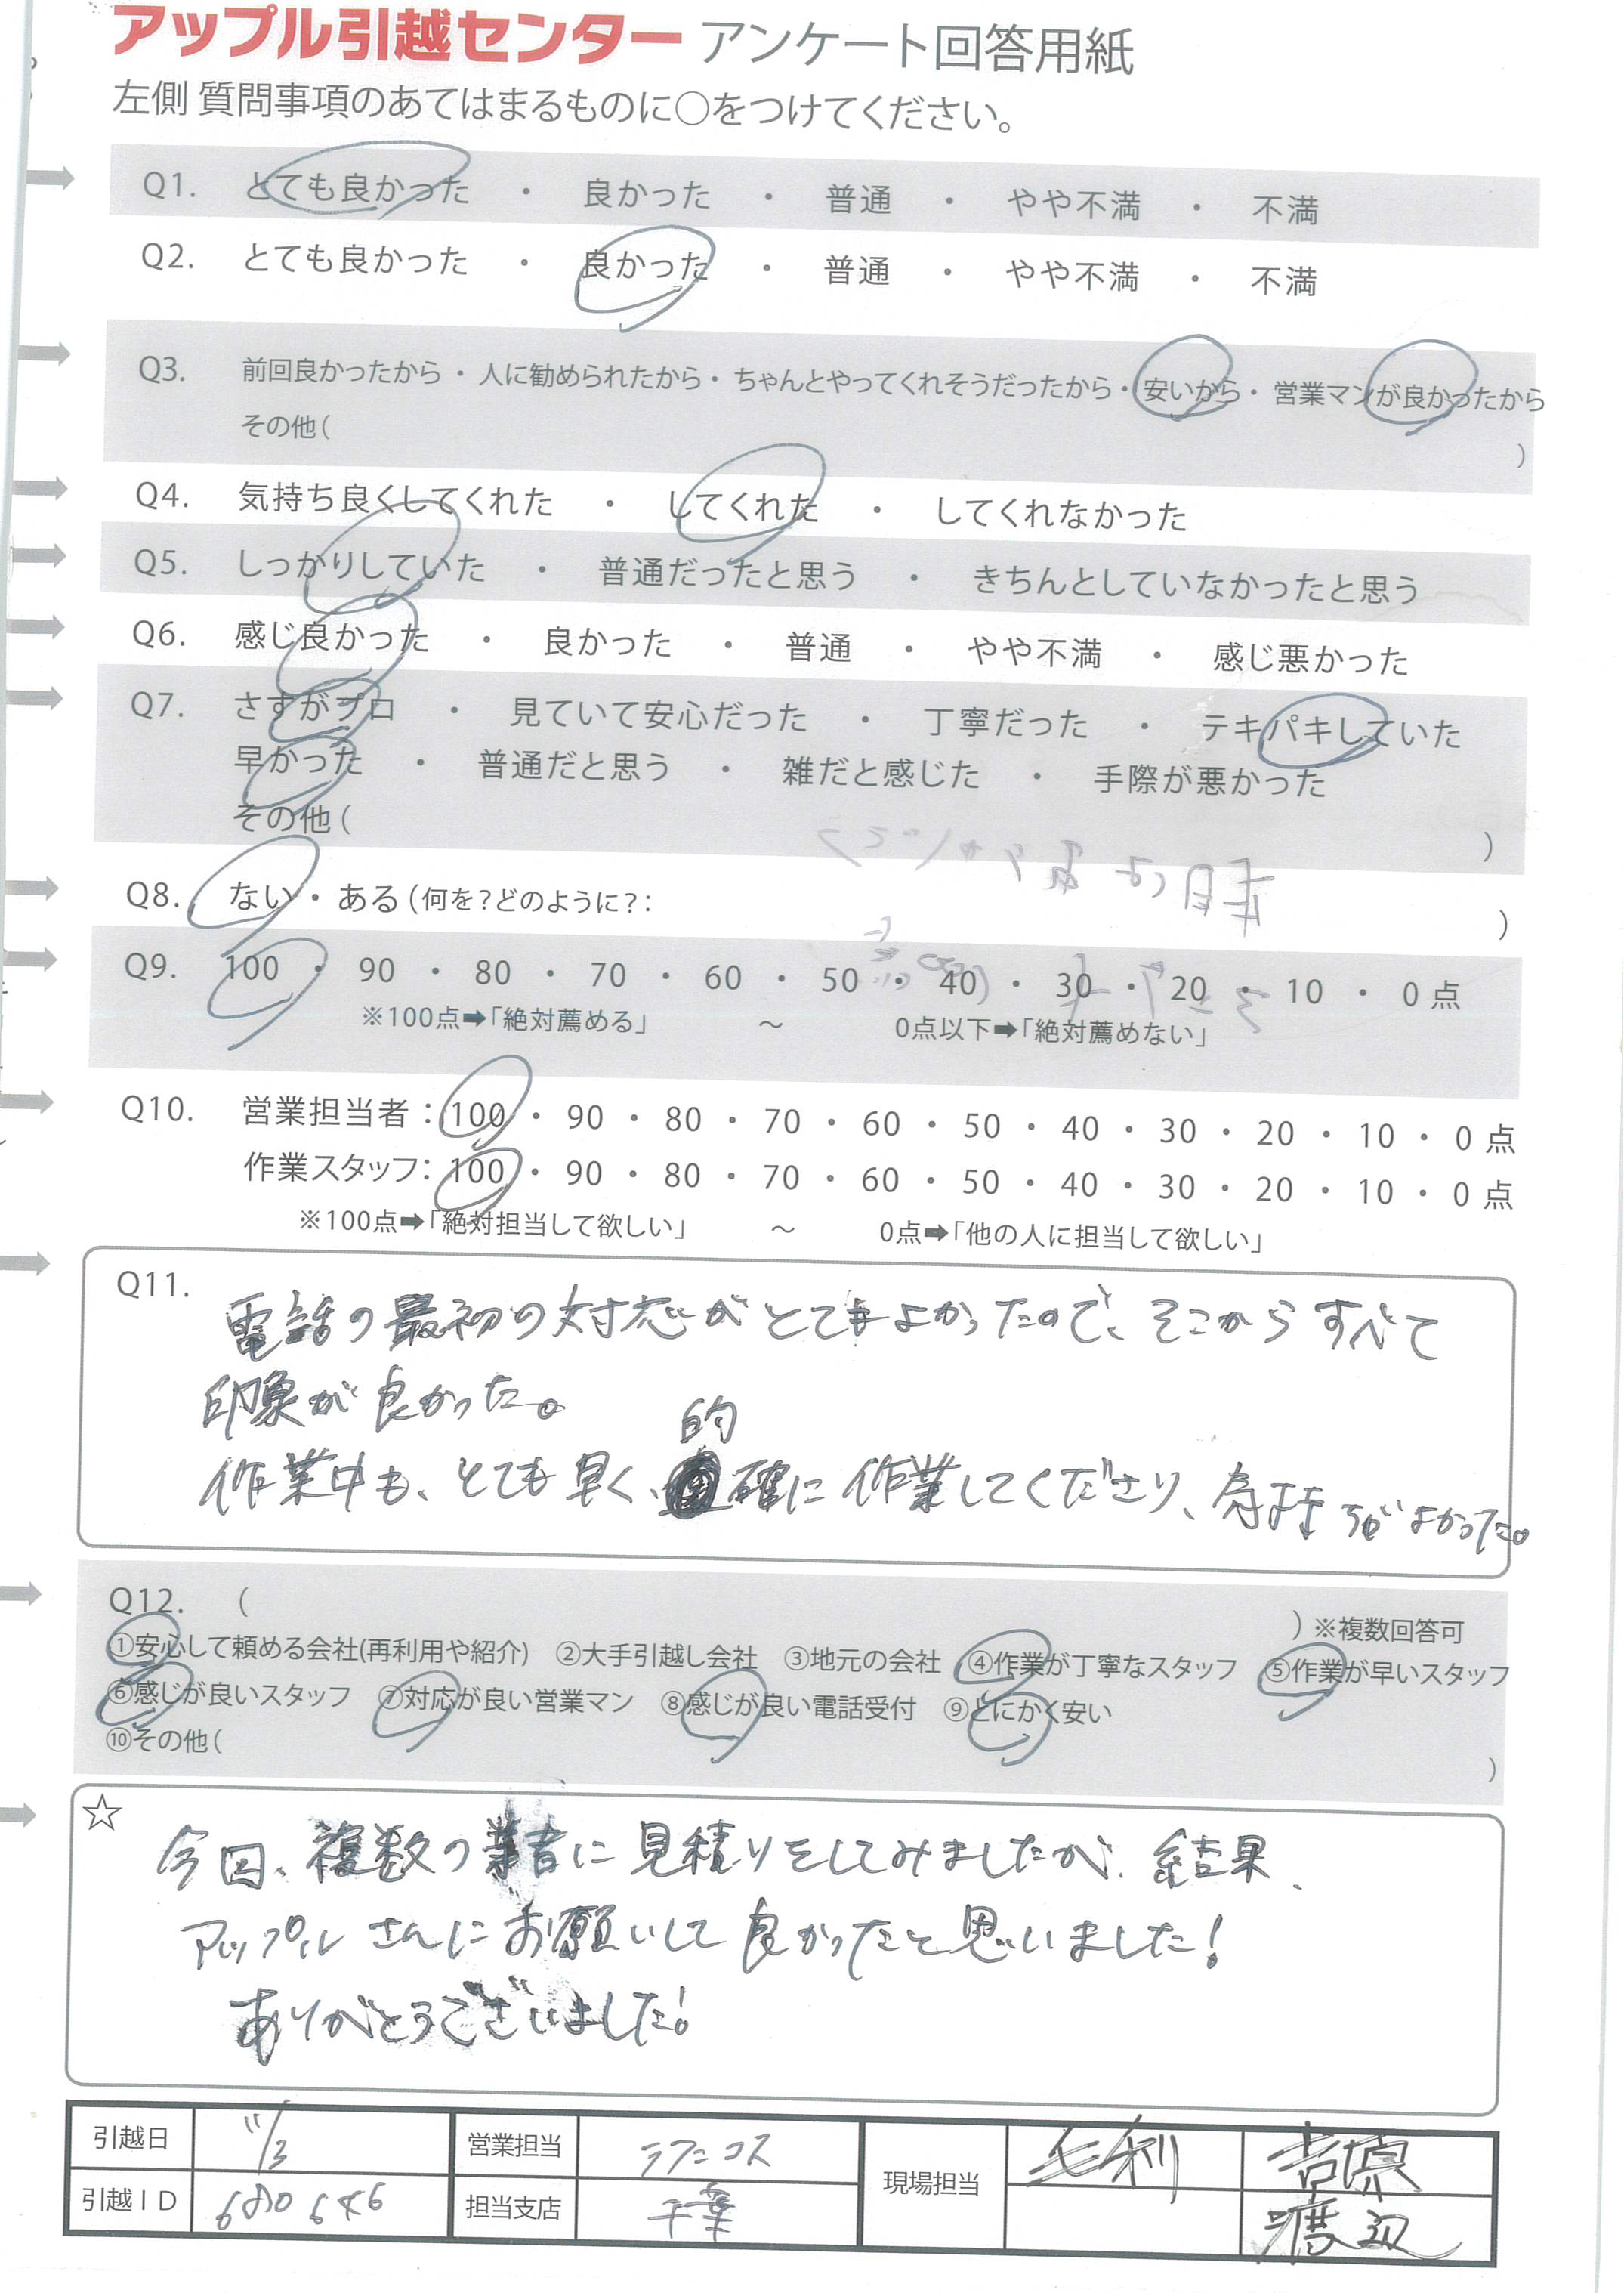 アップル引越センター アンケート回答用紙
左側 質問事項のあてはまるものに○をつけてください。
Q1. とても良かった ・ 良かった ・ 普通 ・ やや不満 ・ 不満
Q2. とても良かった ・ 良かった ・ 普通 ・ やや不満 ・ 不満
Q3. 前回良かったから・人に勧められたから・ちゃんとやってくれそうだったから・安いから・営業マンが良かったから
その他( )
Q4. 気持ち良くしてくれた ・ してくれた ・ してくれなかった
Q5. しっかりしていた ・ 普通だったと思う ・ きちんとしていなかったと思う
Q6. 感じ良かった ・ 良かった ・ 普通 ・ やや不満 ・ 感じ悪かった
Q7. さすがプロ ・ 見ていて安心だった ・ 丁寧だった ・ テキパキしていた
早かった ・ 普通だと思う ・ 雑だと感じた ・ 手際が悪かった
その他( )
Q8. ない・ある(何を?どのように?: )
Q9. 100 ・ 90 ・ 80 ・ 70 ・ 60 ・ 50 ・ 40 ・ 30 ・ 20 ・ 10 ・ 0 点
※100点➡「絶対薦める」 ～ 0点以下➡「絶対薦めない」
Q10. 営業担当者:100 ・ 90 ・ 80 ・ 70 ・ 60 ・ 50 ・ 40 ・ 30 ・ 20 ・ 10 ・ 0 点
作業スタッフ:100 ・ 90 ・ 80 ・ 70 ・ 60 ・ 50 ・ 40 ・ 30 ・ 20 ・ 10 ・ 0 点
※100点➡「絶対担当して欲しい」 ～ 0点➡「他の人に担当して欲しい」
Q11.
電話の最初の対応がとてもよかったので、そこからすべて
印象が良かった。
作業中も、とても早く、的確に作業してくださり、気持ちがよかった。
Q12. ( )※複数回答可
①安心して頼める会社(再利用や紹介) ②大手引越し会社 ③地元の会社 ④作業が丁寧なスタッフ ⑤作業が早いスタッフ
⑥感じが良いスタッフ ⑦対応が良い営業マン ⑧感じが良い電話受付 ⑨とにかく安い
⑩その他( )
☆
今回、複数の業者に見積りをしてみましたが、結果、
アップルさんにお願いして良かったと思いました!
ありがとうございました!
引越日 11/3 営業担当 ラフニコス 現場担当 毛利 吉原
引越ID 680646 担当支店 千葉 渡辺